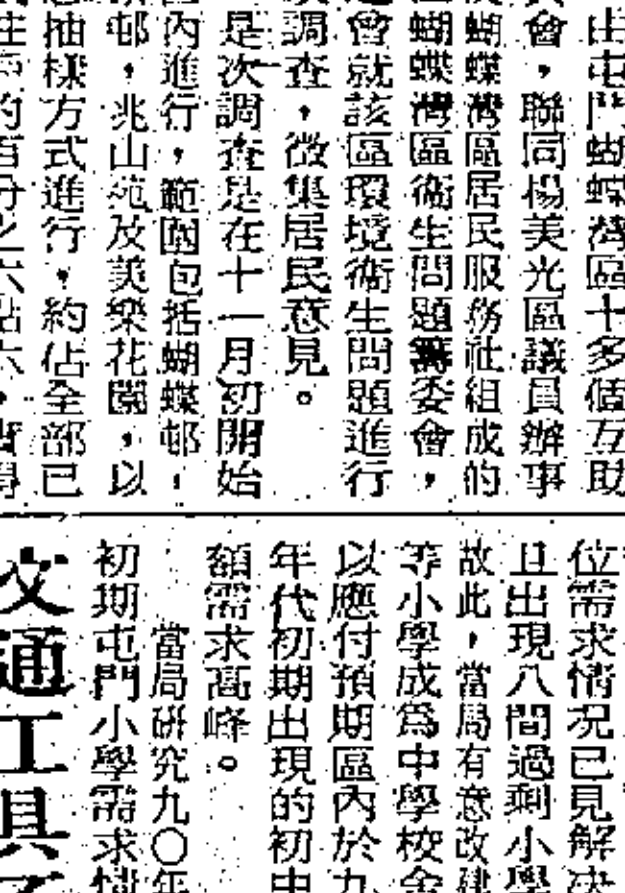 由屯門蝴蝶灣區十多個互助
會，聯同楊美光區議員辦事
蝴蝶灣區居民服務社組成的
蝴蝶灣區衞生問題籌委會，
曾就該區環境衞生問題進行
調查，徵集居民意見。
是次調查是在十一月初開始
內進行，範圍包括蝴蝶邨，
邨，兆山苑及美樂花園，以
抽樣方式進行，約佔全部已
住戶的百分之六點六，
位需求情况已見解决
且出現八間過剩小學
故此，當局有意改建
等小學成爲中學校舍
以應付預期區內於九
年代初期出現的初中
額需求高峰。
當局研究九〇年
初期屯門小學需求情
交通工具